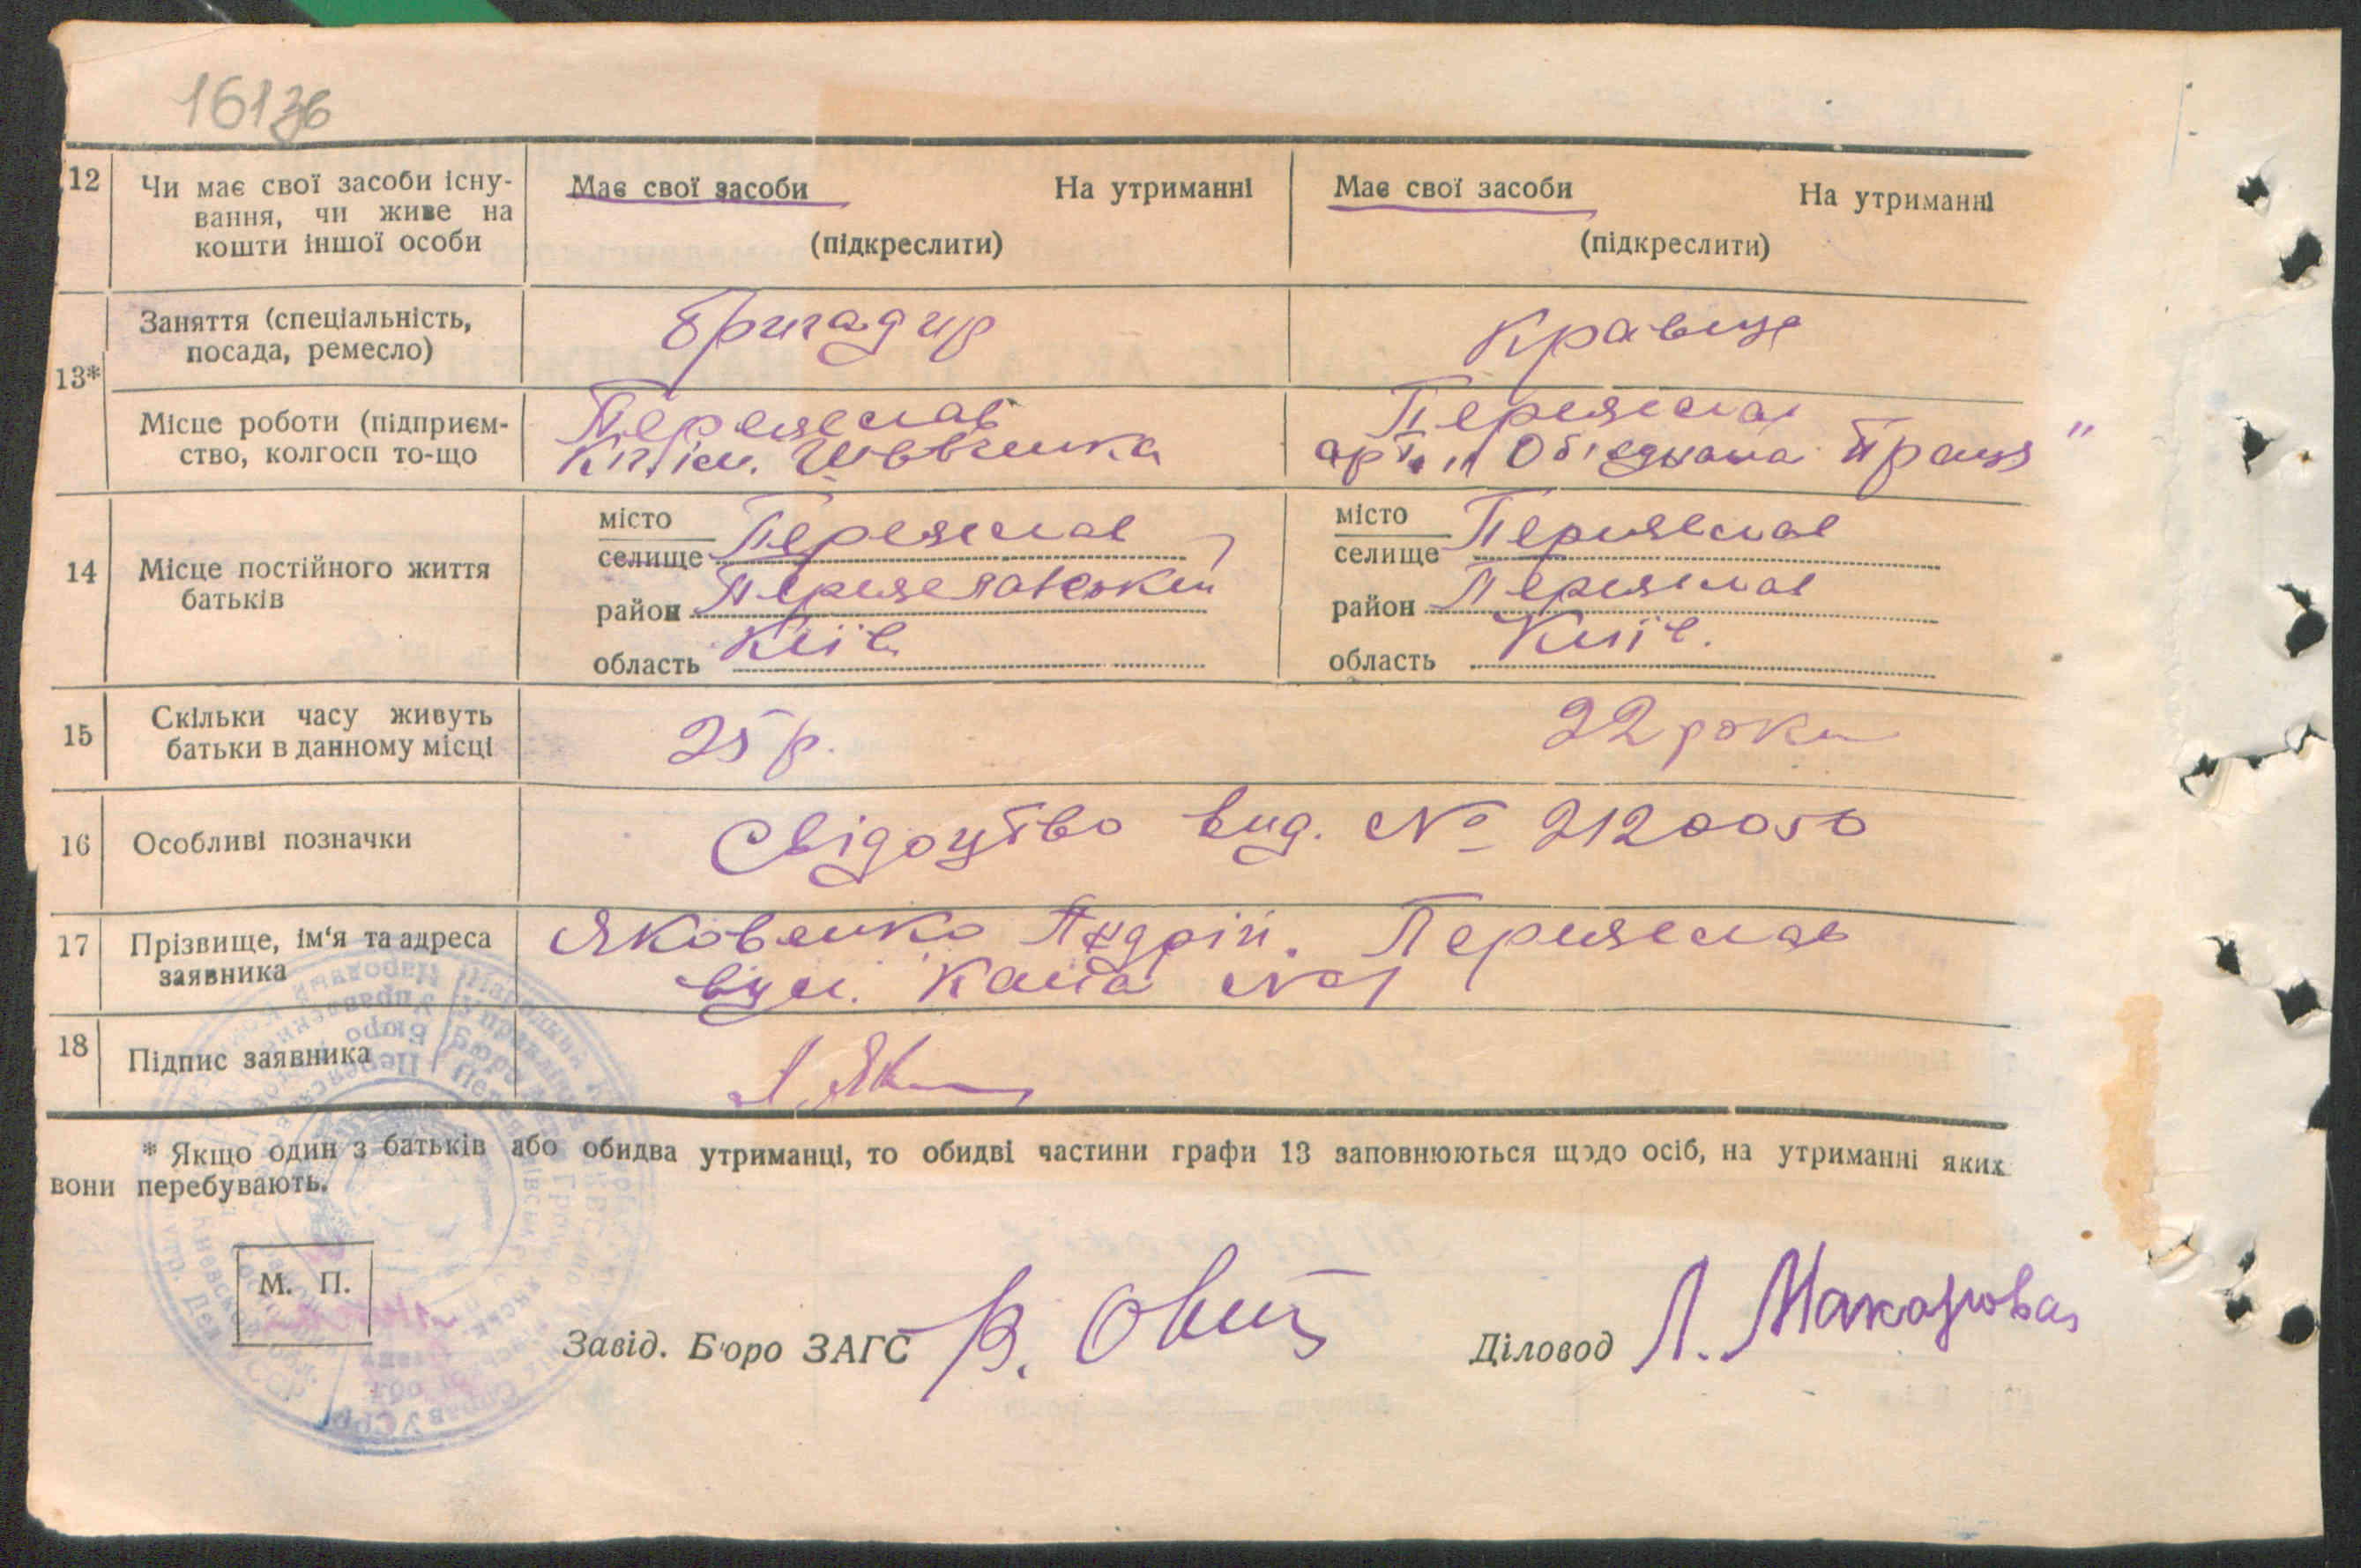 161зв
12 Чи має свої засоби існу- Має свої засоби На утриманні Має свої засоби На утриманні
вання, чи живе на
кошти іншої особи (підкреслити) (підкреслити)
13* Заняття (спеціальність, Бригадир Кравець
посада, ремесло)
Місце роботи (підприєм- Переяслав Переяслав
ство, колгосп то-що Кг. ім. Шевченка арт. „Об'єднана Праця"
14 Місце постійного життя місто Переяслав місто Переяслав
батьків селище селище
район Переяславський район Переяслав
область Київ область Київ.
15 Скільки часу живуть 25 р. 22 роки
батьки в данному місці
16 Особливі позначки Свідоцтво вид. № 2120050
17 Прізвище, ім'я та адреса Яковенко Андрій. Переяслав
заявника вул. №1
18 Підпис заявника
* Якщо один з батьків або обидва утриманці, то обидві частини графи 13 заповнюються щодо осіб, на утриманні яких
вони перебувають.
М. П.
Завід. Бюро ЗАГС В. Діловод Л. Макарова